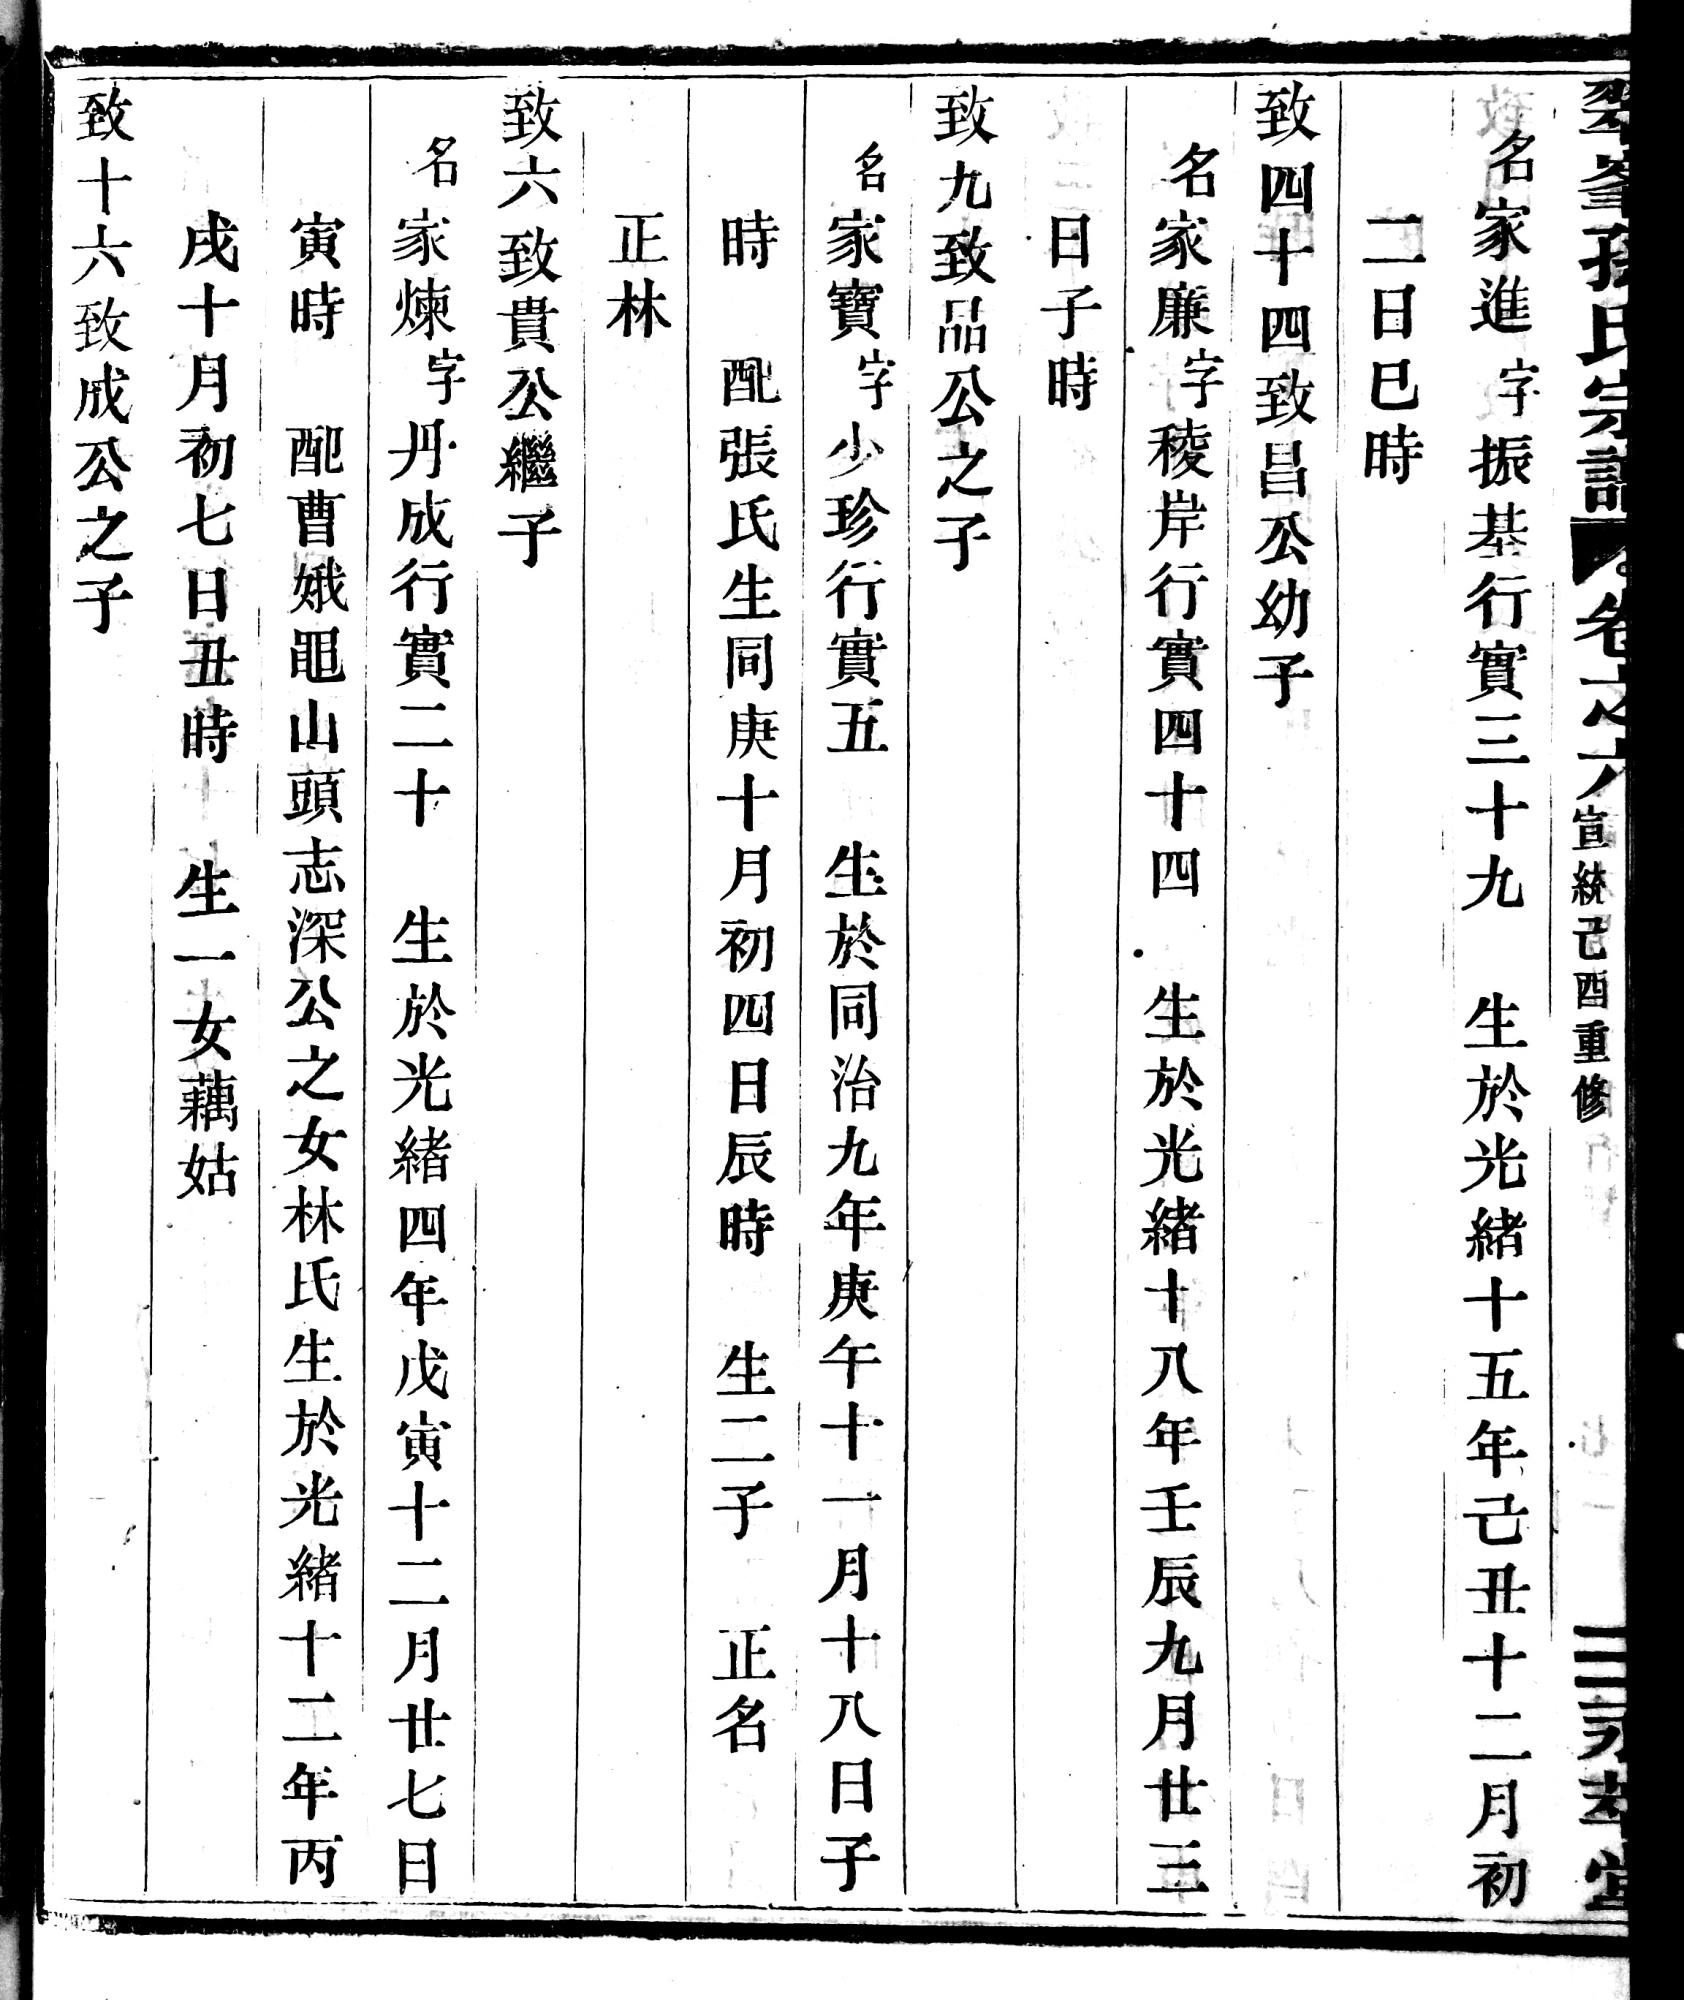 翠峯孫氏宗譜 卷之六 宣統己酉重修
名家進字振基行實三十九 生於光緒十五年己丑十二月初
二日巳時
致四十四致昌公幼子
名家廉字稜岸行實四十四 生於光緒十八年壬辰九月廿三
日子時
致九致品公之子
名家寶字少珍行實五 生於同治九年庚午十一月十八日子
時 配張氏生同庚十月初四日辰時 生二子 正名
正林
致六致貴公繼子
名家煉字丹成行實二十 生於光緒四年戊寅十二月廿七日
寅時 配曹娥黽山頭志深公之女林氏生於光緒十二年丙
戌十月初七日丑時 生一女藕姑
致十六致成公之子